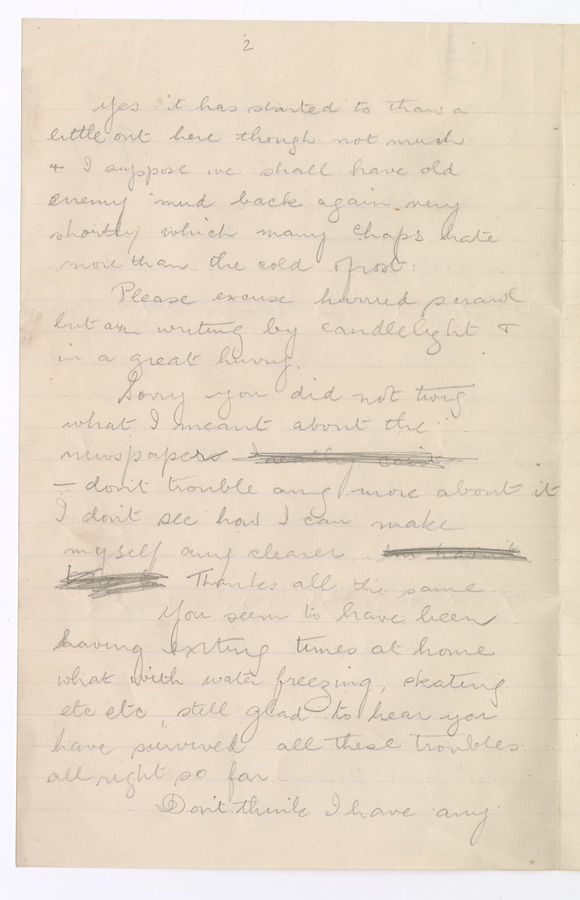 2
Yes it has started to thaw a
little out here though not much
& I suppose we shall have old
enemy mud back again very
shortly which many chaps hate
more than the cold frost.
Please excuse hurried scrawl
but am writing by candlelight &
in a great hurry.
Sorry you did not twig
what I meant about the
newspapers
– don't trouble any more about it
I don't see how I can make
myself any clearer.
Thanks all the same.
You seem to have been
having exciting times at home
what with water freezing, skating
etc etc, still glad to hear you
have survived all these troubles
all right so far.
Don't think I have any